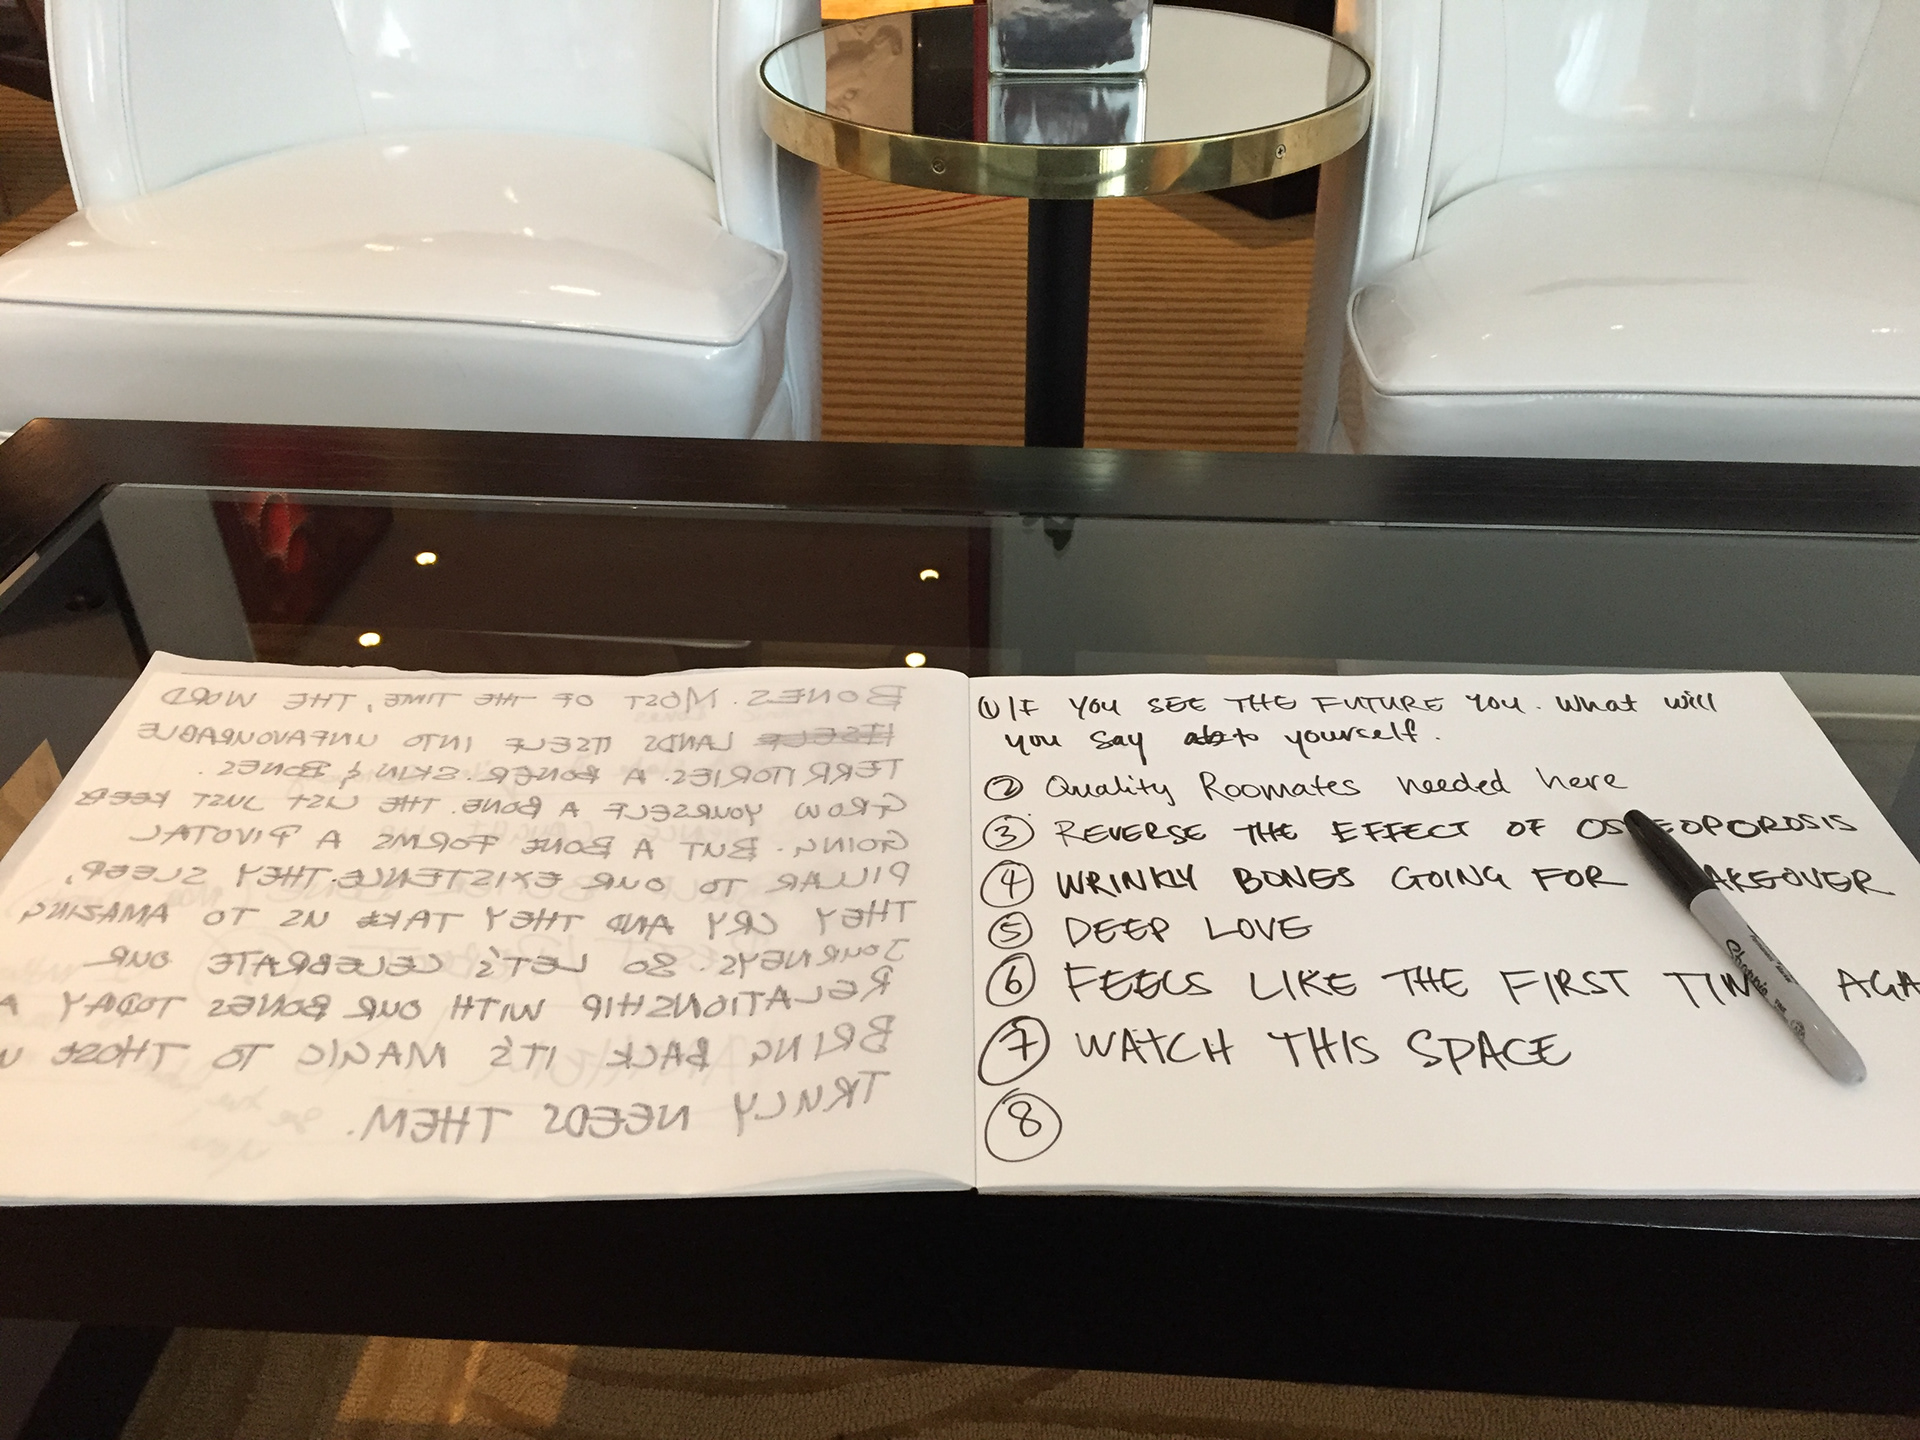 BONES. MOST OF THE TIME, THE WORD
ITSELF LANDS ITSELF INTO UNFAVOURABLE
TERRITORIES. A BONER. SKIN & BONES.
GROW YOURSELF A BONE. THE LIST JUST KEEPS
GOING. BUT A BONE FORMS A PIVOTAL
PILLAR TO OUR EXISTENCE. THEY SLEEP,
THEY CRY AND THEY TAKE US TO AMAZING
JOURNEYS. SO LET'S CELEBRATE OUR
RELATIONSHIP WITH OUR BONES TODAY A
BRING BACK IT'S MAGIC TO THOSE
TRULY NEEDS THEM.
① IF YOU SEE THE FUTURE YOU. What will
you say to yourself.
② Quality Roomates needed here
③ REVERSE THE EFFECT OF OSTEOPOROSIS
④ WRINKLY BONES GOING FOR AKEOVER
⑤ DEEP LOVE
⑥ FEELS LIKE THE FIRST TIM AGA
⑦ WATCH THIS SPACE
⑧
Sharpie